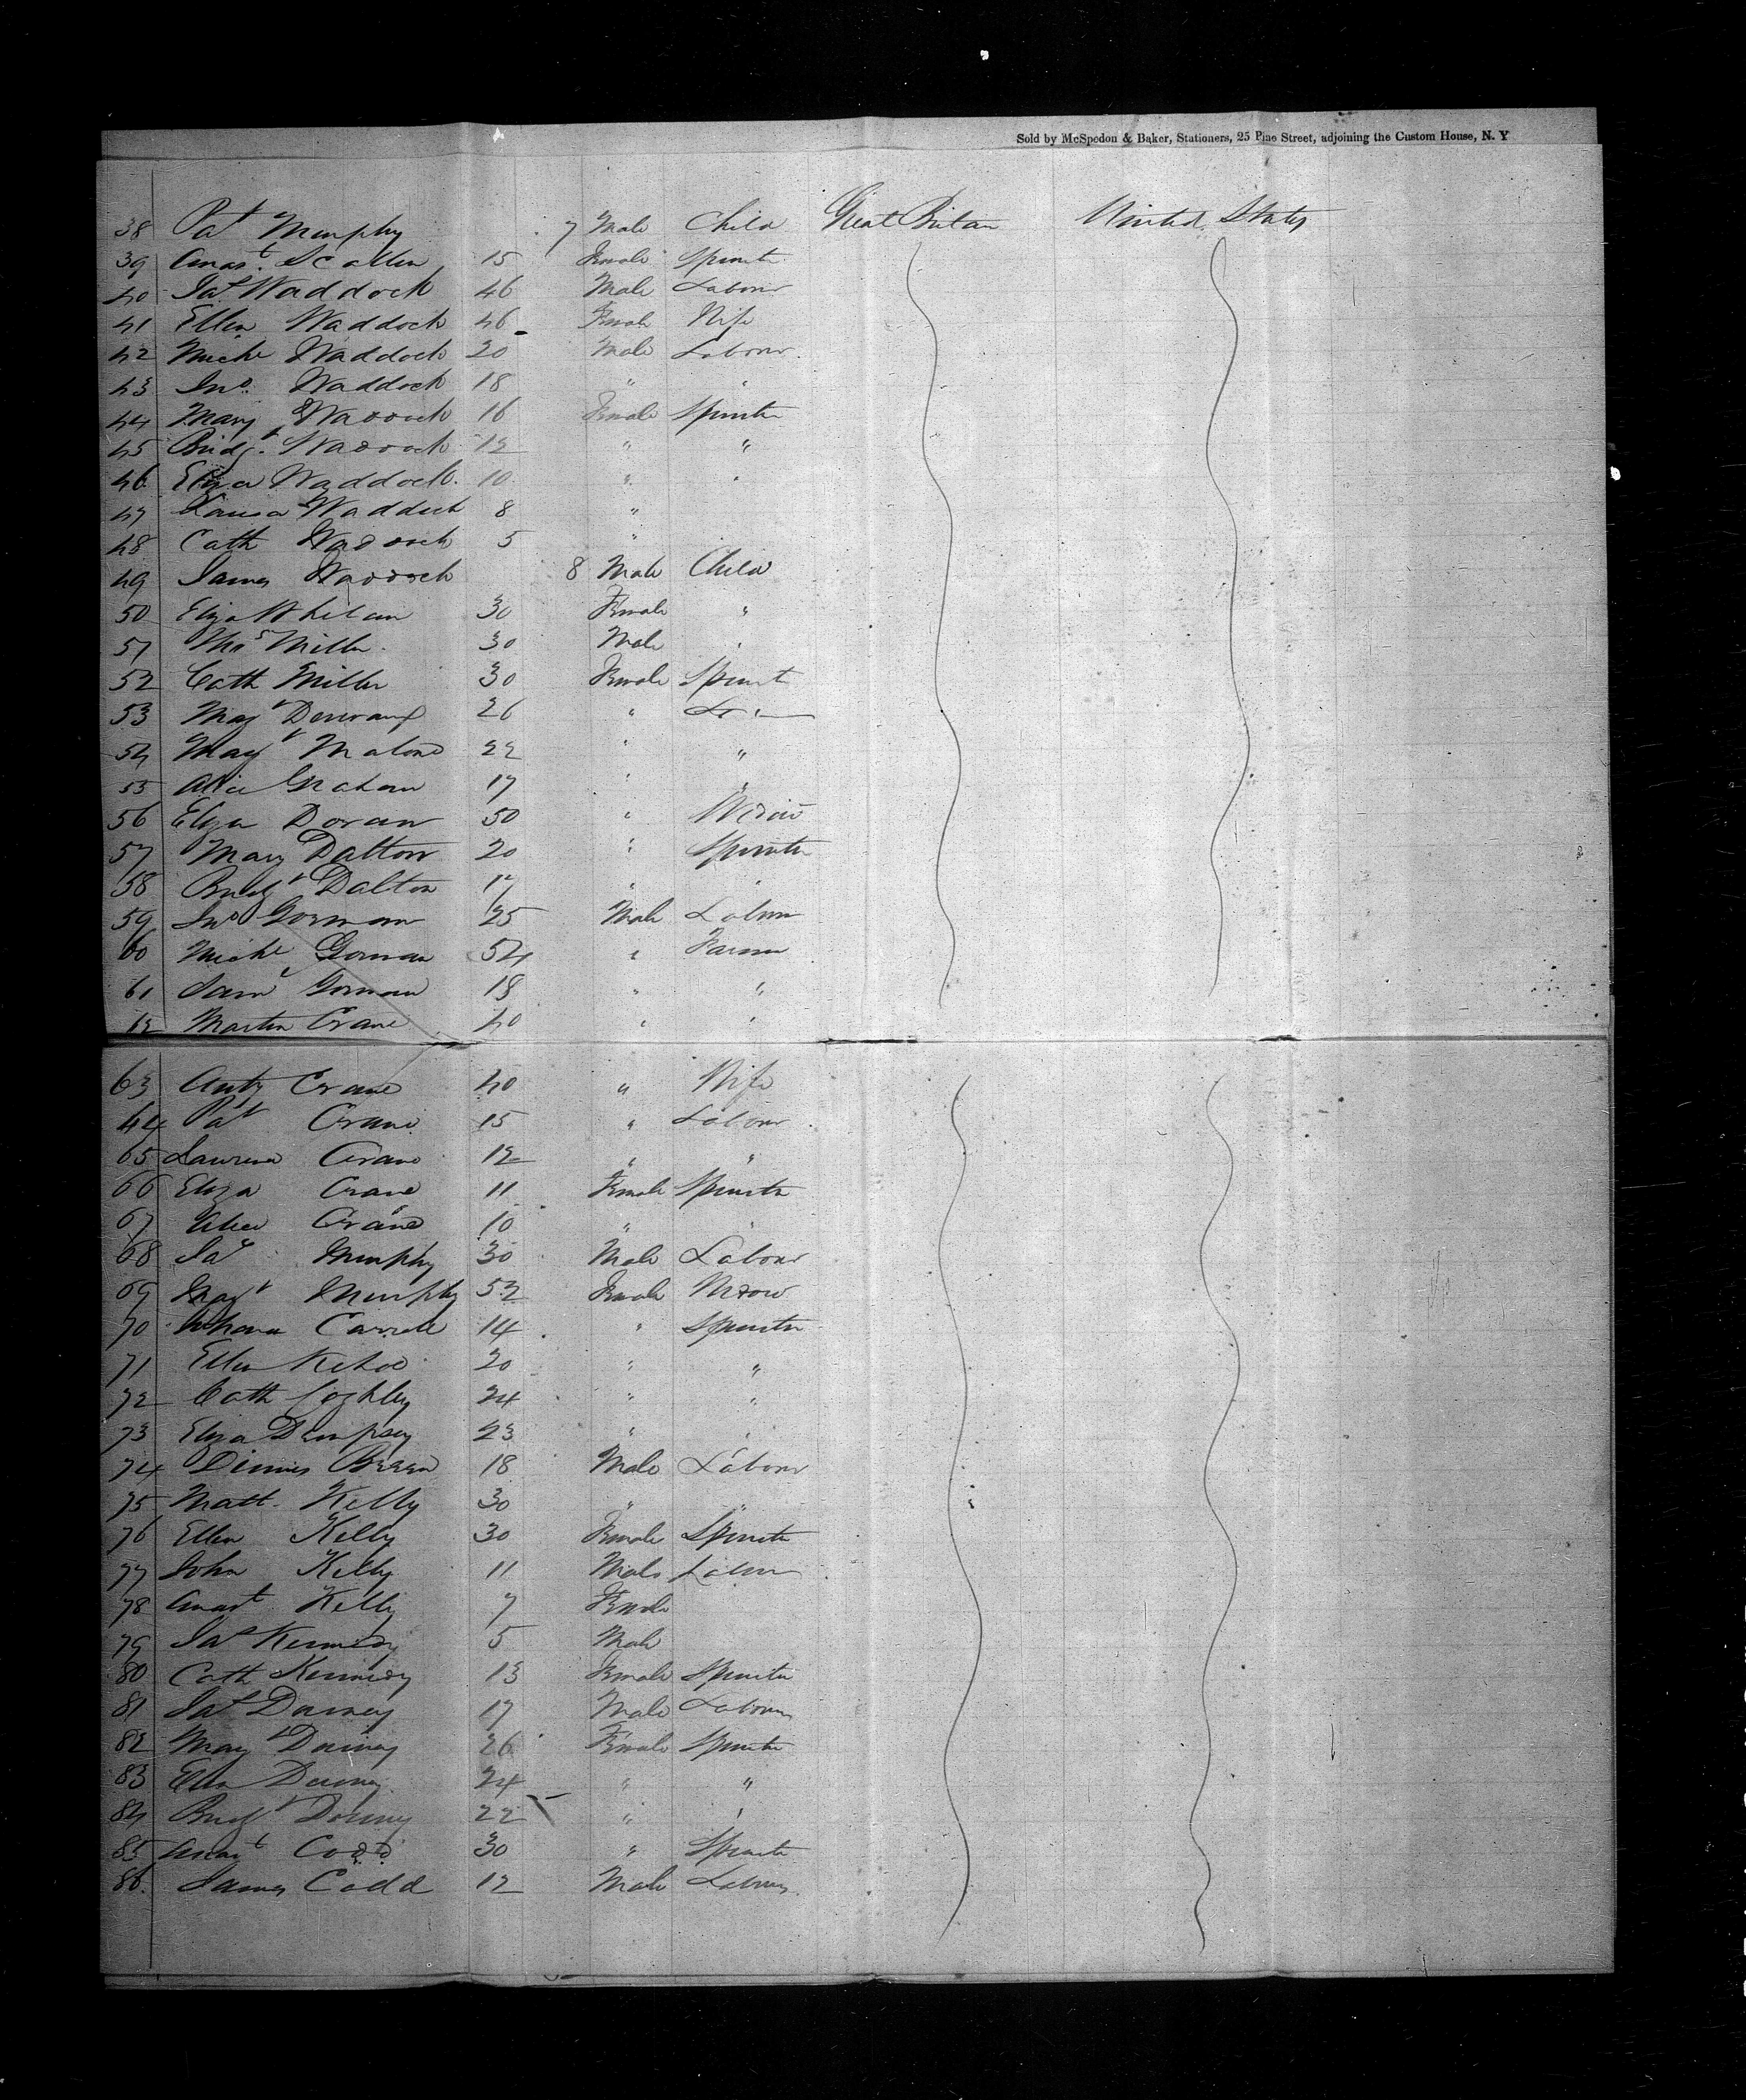 Sold by McSpedon & Baker, Stationers, 25 Pine Street, adjoining the Custom House, N. Y
38 Pat Murphy 7 Male Child Great Britan United States
39 Anast. Scallen 15 Female Spinster
40 Jas Waddock 46 Male Labour
41 Ellen Waddock 46 Female Wife
42 Michl Waddock 20 Male Labour
43 Jno. Waddock 18 " "
44 Mary Waddock 16 Female Spinster
45 Bridgt. Waddock 12 " "
46 Eliza Waddock. 10 " "
47 Louisa Waddock 8 "
48 Cath Waddock 5 "
49 James Waddock 8 Male Child
50 Eliza Whelan 30 Female "
51 Thos Miller 30 Male "
52 Cath Miller 30 Female Spinst
53 Magt 26 "
54 Magt Malone 22 " "
55 Alice Graham 17 " "
56 Eliza Doran 50 " Widow
57 Mary Dalton 20 " Spinster
58 Bridgt Dalton 17 " "
59 Jno Gorman 25 Male Labour
60 Michl Gorman 54 " Farmer
61 Saml Gorman 18 " "
62 Martin Crane 40 " "
63 Anty Crane 40 " Wife
64 Pat Crane 15 " Labour
65 Lawrence Crane 12 " "
66 Eliza Crane 11 Female Spinster
67 Alice Crane 10 " "
68 Jas Murphy 30 Male Labour
69 Magt Murphy 52 Female Widow
70 Johana Carroll 14 " Spinster
71 Ellen Kehoe 20 " "
72 Cath 24 " "
73 Eliza Dempsey 23 " "
74 Dinnis Breen 18 Male Labour
75 Matt. Kelly 30 " "
76 Ellen Kelly 30 Female Spinster
77 John Kelly 11 Male Labour
78 Anast Kelly 7 Female
79 Jas Kennedy 5 Male
80 Cath Kennedy 13 Female Spinster
81 Jas 17 Male Labour
82 Magt 26 Female Spinster
83 Ellen 24 " "
84 Bridgt 22 " "
85 Anast Codd 30 " Spinster
86. James Codd 12 Male Labour